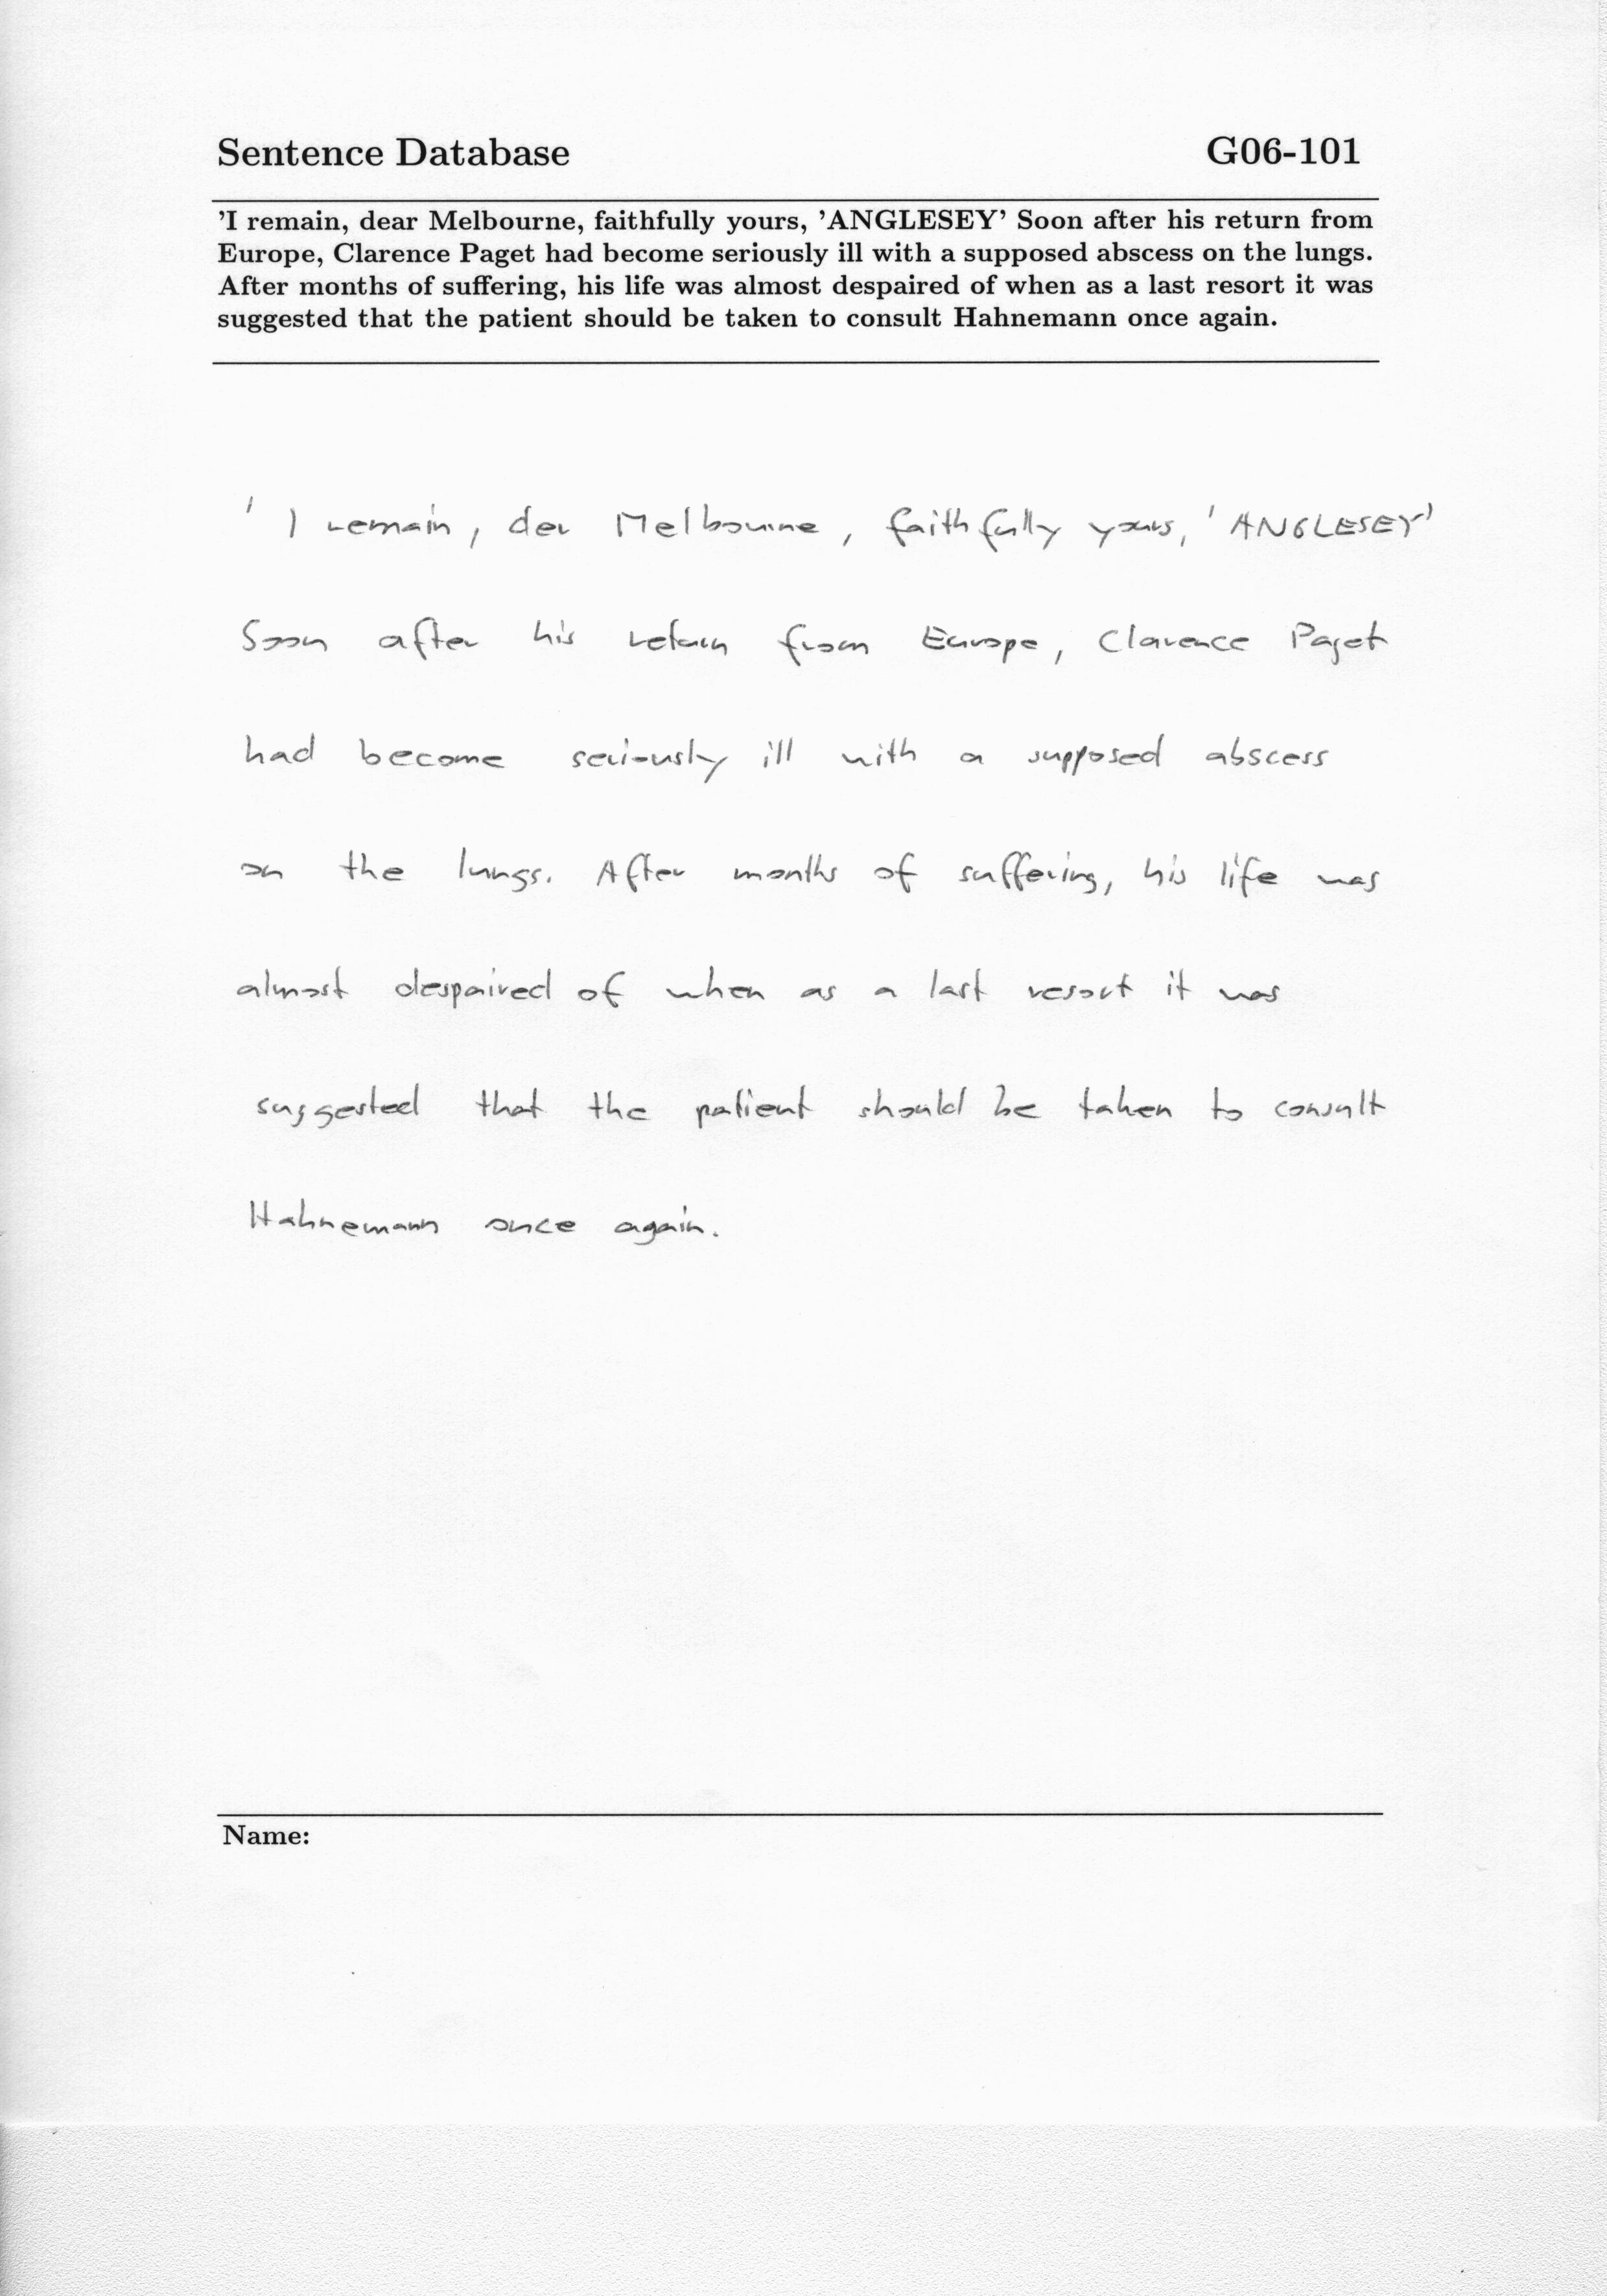 Sentence Database G06-101
'I remain, dear Melbourne, faithfully yours, 'ANGLESEY' Soon after his return from
Europe, Clarence Paget had become seriously ill with a supposed abscess on the lungs.
After months of suffering, his life was almost despaired of when as a last resort it was
suggested that the patient should be taken to consult Hahnemann once again.
' I remain, der Melbourne, faithfully yours, 'ANGLESEY'
Soon after his return from Europe, Clarence Paget
had become seriously ill with a supposed abscess
on the lungs. After months of suffering, his life was
almost despaired of when as a last resort it was
suggested that the patient should be taken to consult
Hahnemann once again.
Name: